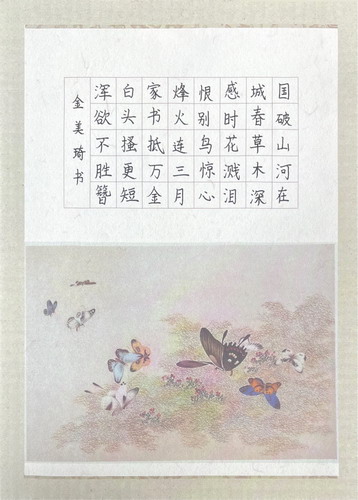 国破山河在
城春草木深
感时花溅泪
恨别鸟惊心
烽火连三月
家书抵万金
白头搔更短
浑欲不胜簪
金美琦书